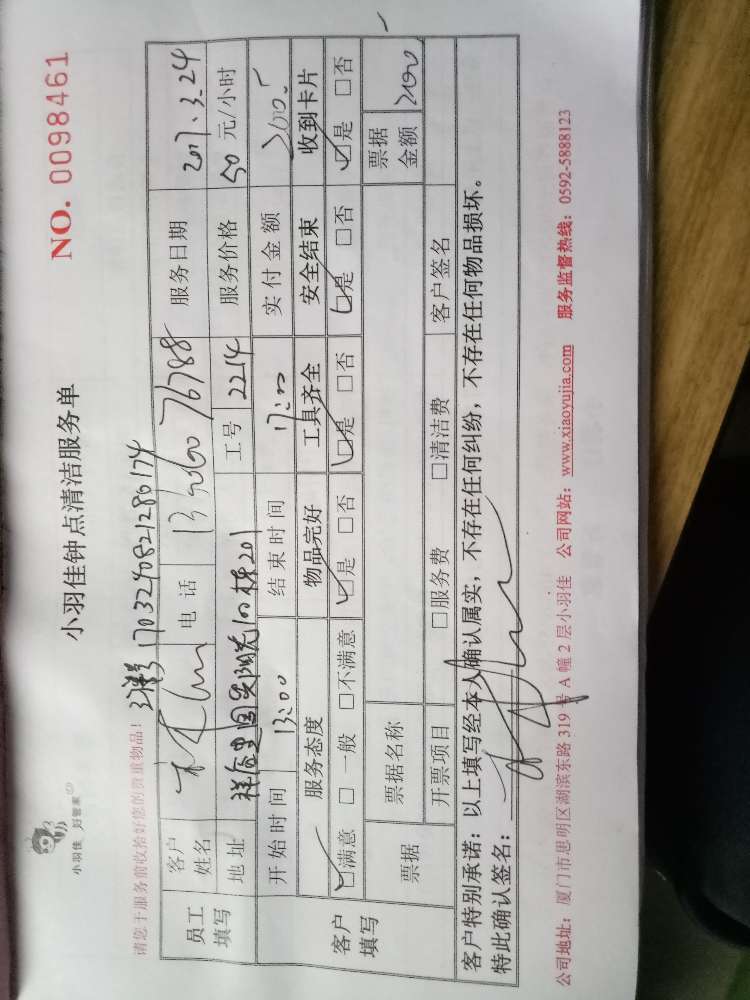 小羽佳 好管家
小羽佳钟点清洁服务单
NO. 0098461
请您于服务前收拾好您的贵重物品!
1703240821280174
员工填写
客户姓名 林 电话 服务日期 2017.3.24
地址 201 工号 2214 服务价格 50 元/小时
开始时间 13:00 结束时间 17:00 实付金额 200.
客户填写
服务态度 物品完好 工具齐全 安全结束 收到卡片
☑满意 □一般 □不满意 ☑是 □否 ☑是 □否 ☑是 □否 ☑是 □否
票据 票据名称 票据金额 200
开票项目 □服务费 □清洁费 客户签名
客户特别承诺:以上填写经本人确认属实,不存在任何纠纷,不存在任何物品损坏。
特此确认签名:
公司地址:厦门市思明区湖滨东路 319 号 A 幢 2 层小羽佳 公司网站:www.xiaoyujia.com 服务监督热线:0592-5888123